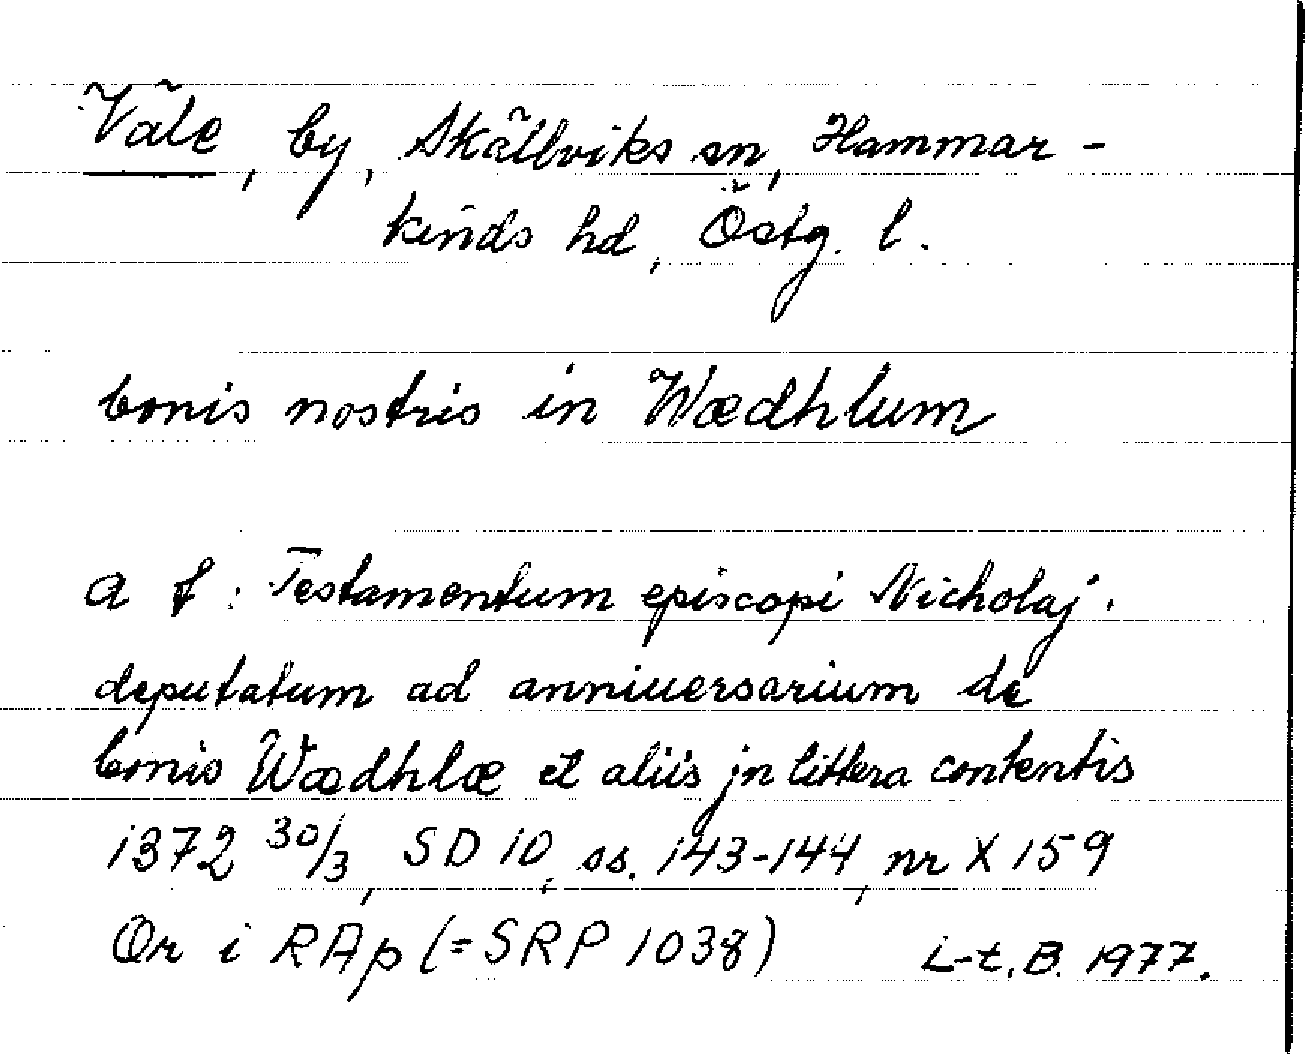 Väle, by, Skällviks sn, Hammar-
kinds hd, Östg. l.
bonis nostris in Wædhlum
a t: Testamentum episcopi Nicholaj.
deputatum ad anniuersarium de
bonis Wædhlæ et aliis jn littera contentis
1372 30/3, SD 10, ss. 143-144, nr X 159
Or i RAp (=SRP 1038) L-t. B. 1977.